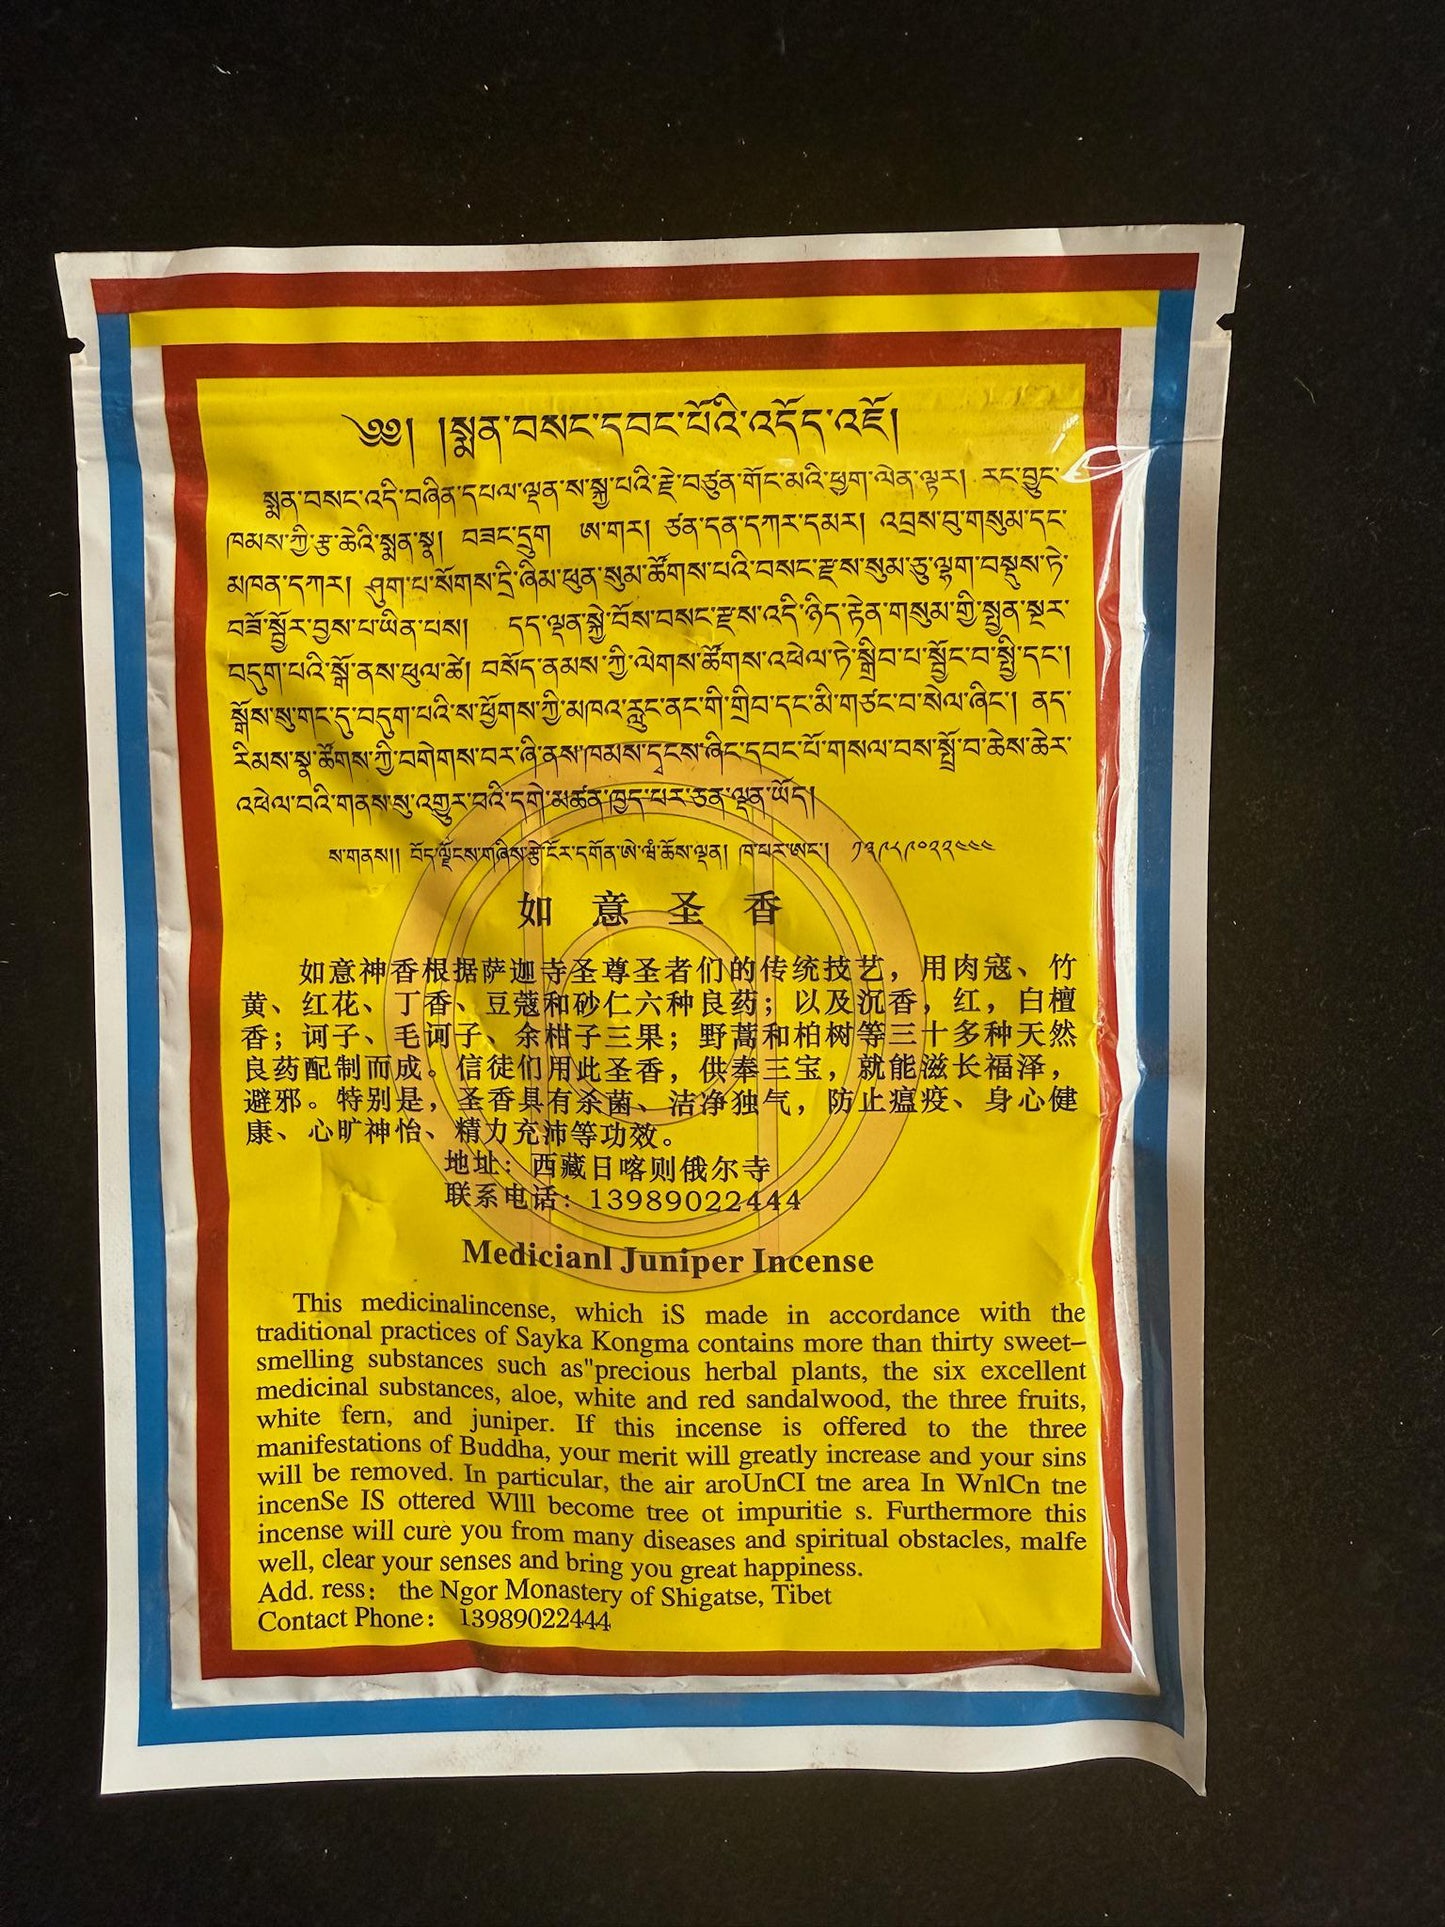 ༄༅། །སྨན་བསང་དབང་པོའི་འདོད་འཇོ།
སྨན་བསང་འདི་བཞིན་དཔལ་ལྡན་ས་སྐྱ་པའི་རྗེ་བཙུན་གོང་མའི་ཕྱག་ལེན་ལྟར། རང་བྱུང་
ཁམས་ཀྱི་རྩྭ་ཆེའི་སྨན་སྣ། བཟང་དྲུག ཨ་གར། ཙན་དན་དཀར་དམར། འབྲས་བུ་གསུམ་དང་
མཁན་དཀར། ཤུག་པ་སོགས་དྲི་ཞིམ་ཕུན་སུམ་ཚོགས་པའི་བསང་རྫས་སུམ་ཅུ་ལྷག་བསྡུས་ཏེ་
བཟོ་སྦྱོར་བྱས་པ་ཡིན་པས། དད་ལྡན་སྐྱེ་བོས་བསང་རྫས་འདི་ཉིད་རྟེན་གསུམ་གྱི་སྤྱན་སྔར་
བདུག་པའི་སྒོ་ནས་ཕུལ་ཚེ། བསོད་ནམས་ཀྱི་ལེགས་ཚོགས་འཕེལ་ཏེ་སྒྲིབ་པ་སྦྱོང་བ་སྤྱི་དང་།
སྒོས་སུ་གང་དུ་བདུག་པའི་ས་ཕྱོགས་ཀྱི་མཁའ་རླུང་ནང་གི་གྲིབ་དང་མི་གཙང་བ་སེལ་ཞིང་། ནད་
རིམས་སྣ་ཚོགས་ཀྱི་བགེགས་བར་ཞི་ནས་ཁམས་དྭངས་ཞིང་དབང་པོ་གསལ་བས་སྤྲོ་བ་ཆེས་ཆེར་
འཕེལ་བའི་གནས་སུ་འགྱུར་བའི་དགེ་མཚན་ཁྱད་པར་ཅན་ལྡན་ཡོད།
ས་གནས།། བོད་ལྗོངས་གཞིས་རྩེ་ངོར་དགོན་ཨེ་ཝཾ་ཆོས་ལྡན། ཁ་པར་ཨང་། ༡༣༩༨༩༠༢༢༤༤༤
如意圣香
如意神香根据萨迦寺圣尊圣者们的传统技艺，用肉寇、竹
黄、红花、丁香、豆蔻和砂仁六种良药；以及沉香，红，白檀
香；诃子、毛诃子、余柑子三果；野蒿和柏树等三十多种天然
良药配制而成。信徒们用此圣香，供奉三宝，就能滋长福泽，
避邪。特别是，圣香具有杀菌、洁净独气，防止瘟疫、身心健
康、心旷神怡、精力充沛等功效。
地址：西藏日喀则俄尔寺
联系电话：13989022444
Medicianl Juniper Incense
This medicinalincense, which iS made in accordance with the
traditional practices of Sayka Kongma contains more than thirty sweet–
smelling substances such as"precious herbal plants, the six excellent
medicinal substances, aloe, white and red sandalwood, the three fruits,
white fern, and juniper. If this incense is offered to the three
manifestations of Buddha, your merit will greatly increase and your sins
will be removed. In particular, the air aroUnCI tne area In WnlCn tne
incenSe IS ottered Wlll become tree ot impuritie s. Furthermore this
incense will cure you from many diseases and spiritual obstacles, malfe
well, clear your senses and bring you great happiness.
Add. ress： the Ngor Monastery of Shigatse, Tibet
Contact Phone： 13989022444